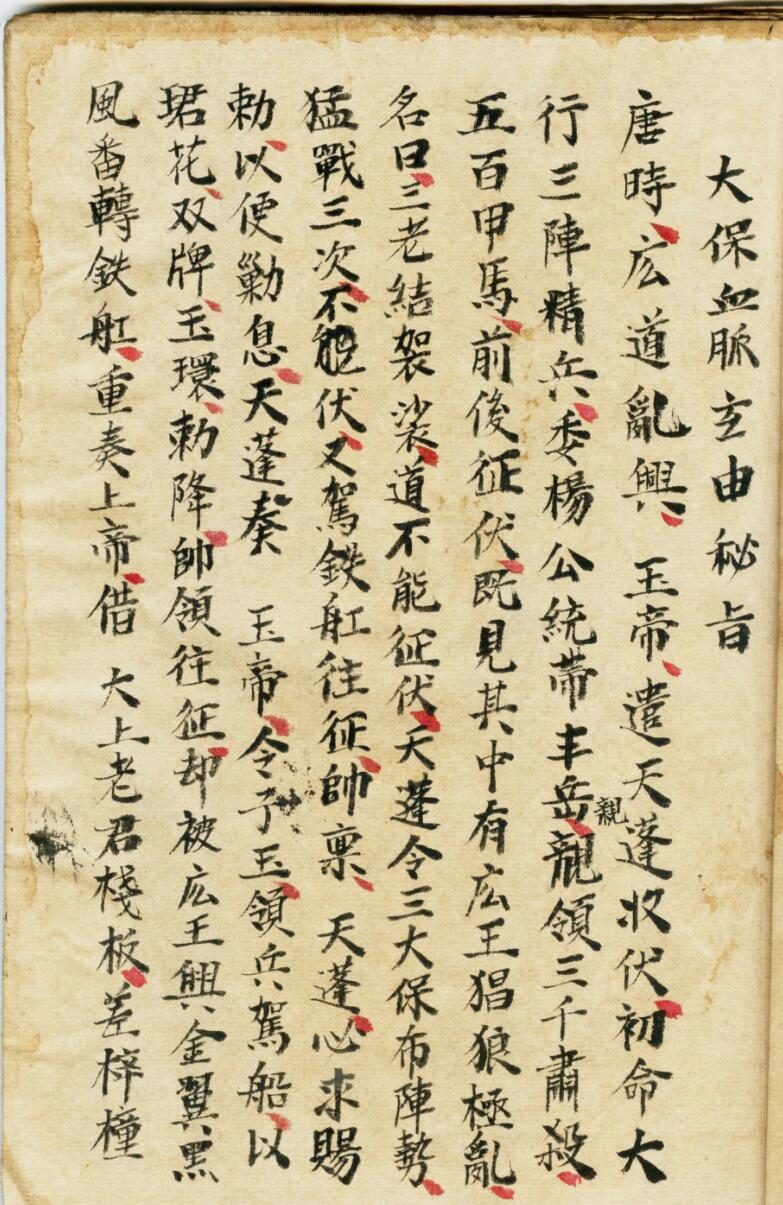 大保血脈玄由秘旨
唐時広道亂興 玉帝遣天蓬收伏初命大
行三陣精兵委楊公統帶丰岳親領三千肅殺
親
五百甲馬前後征伏既見其中有広王猖狼極亂
名曰三老結袈裟道不能征伏天蓬令三大保布陣勢
猛戰三次不能伏又駕鉄舡往征帥禀 天蓬心求賜
勅以便勦息天蓬奏 玉帝令子玉領兵駕船以
珺花双牌玉環勅降帥領往征却被広王興金翼黑
風番轉鉄舡重奏上帝借 大上老君棧板差梓橦